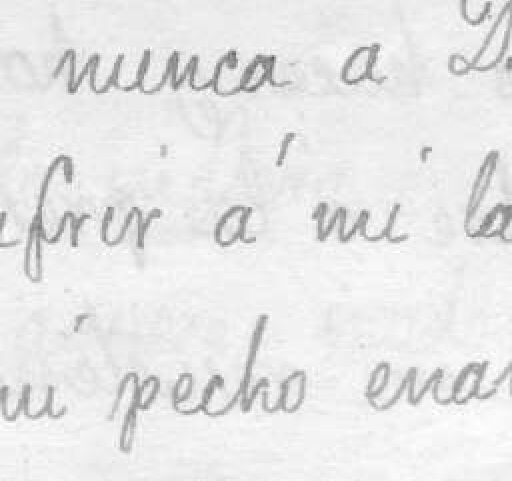 nunca a D
ufrir á mi la
mi pecho ena